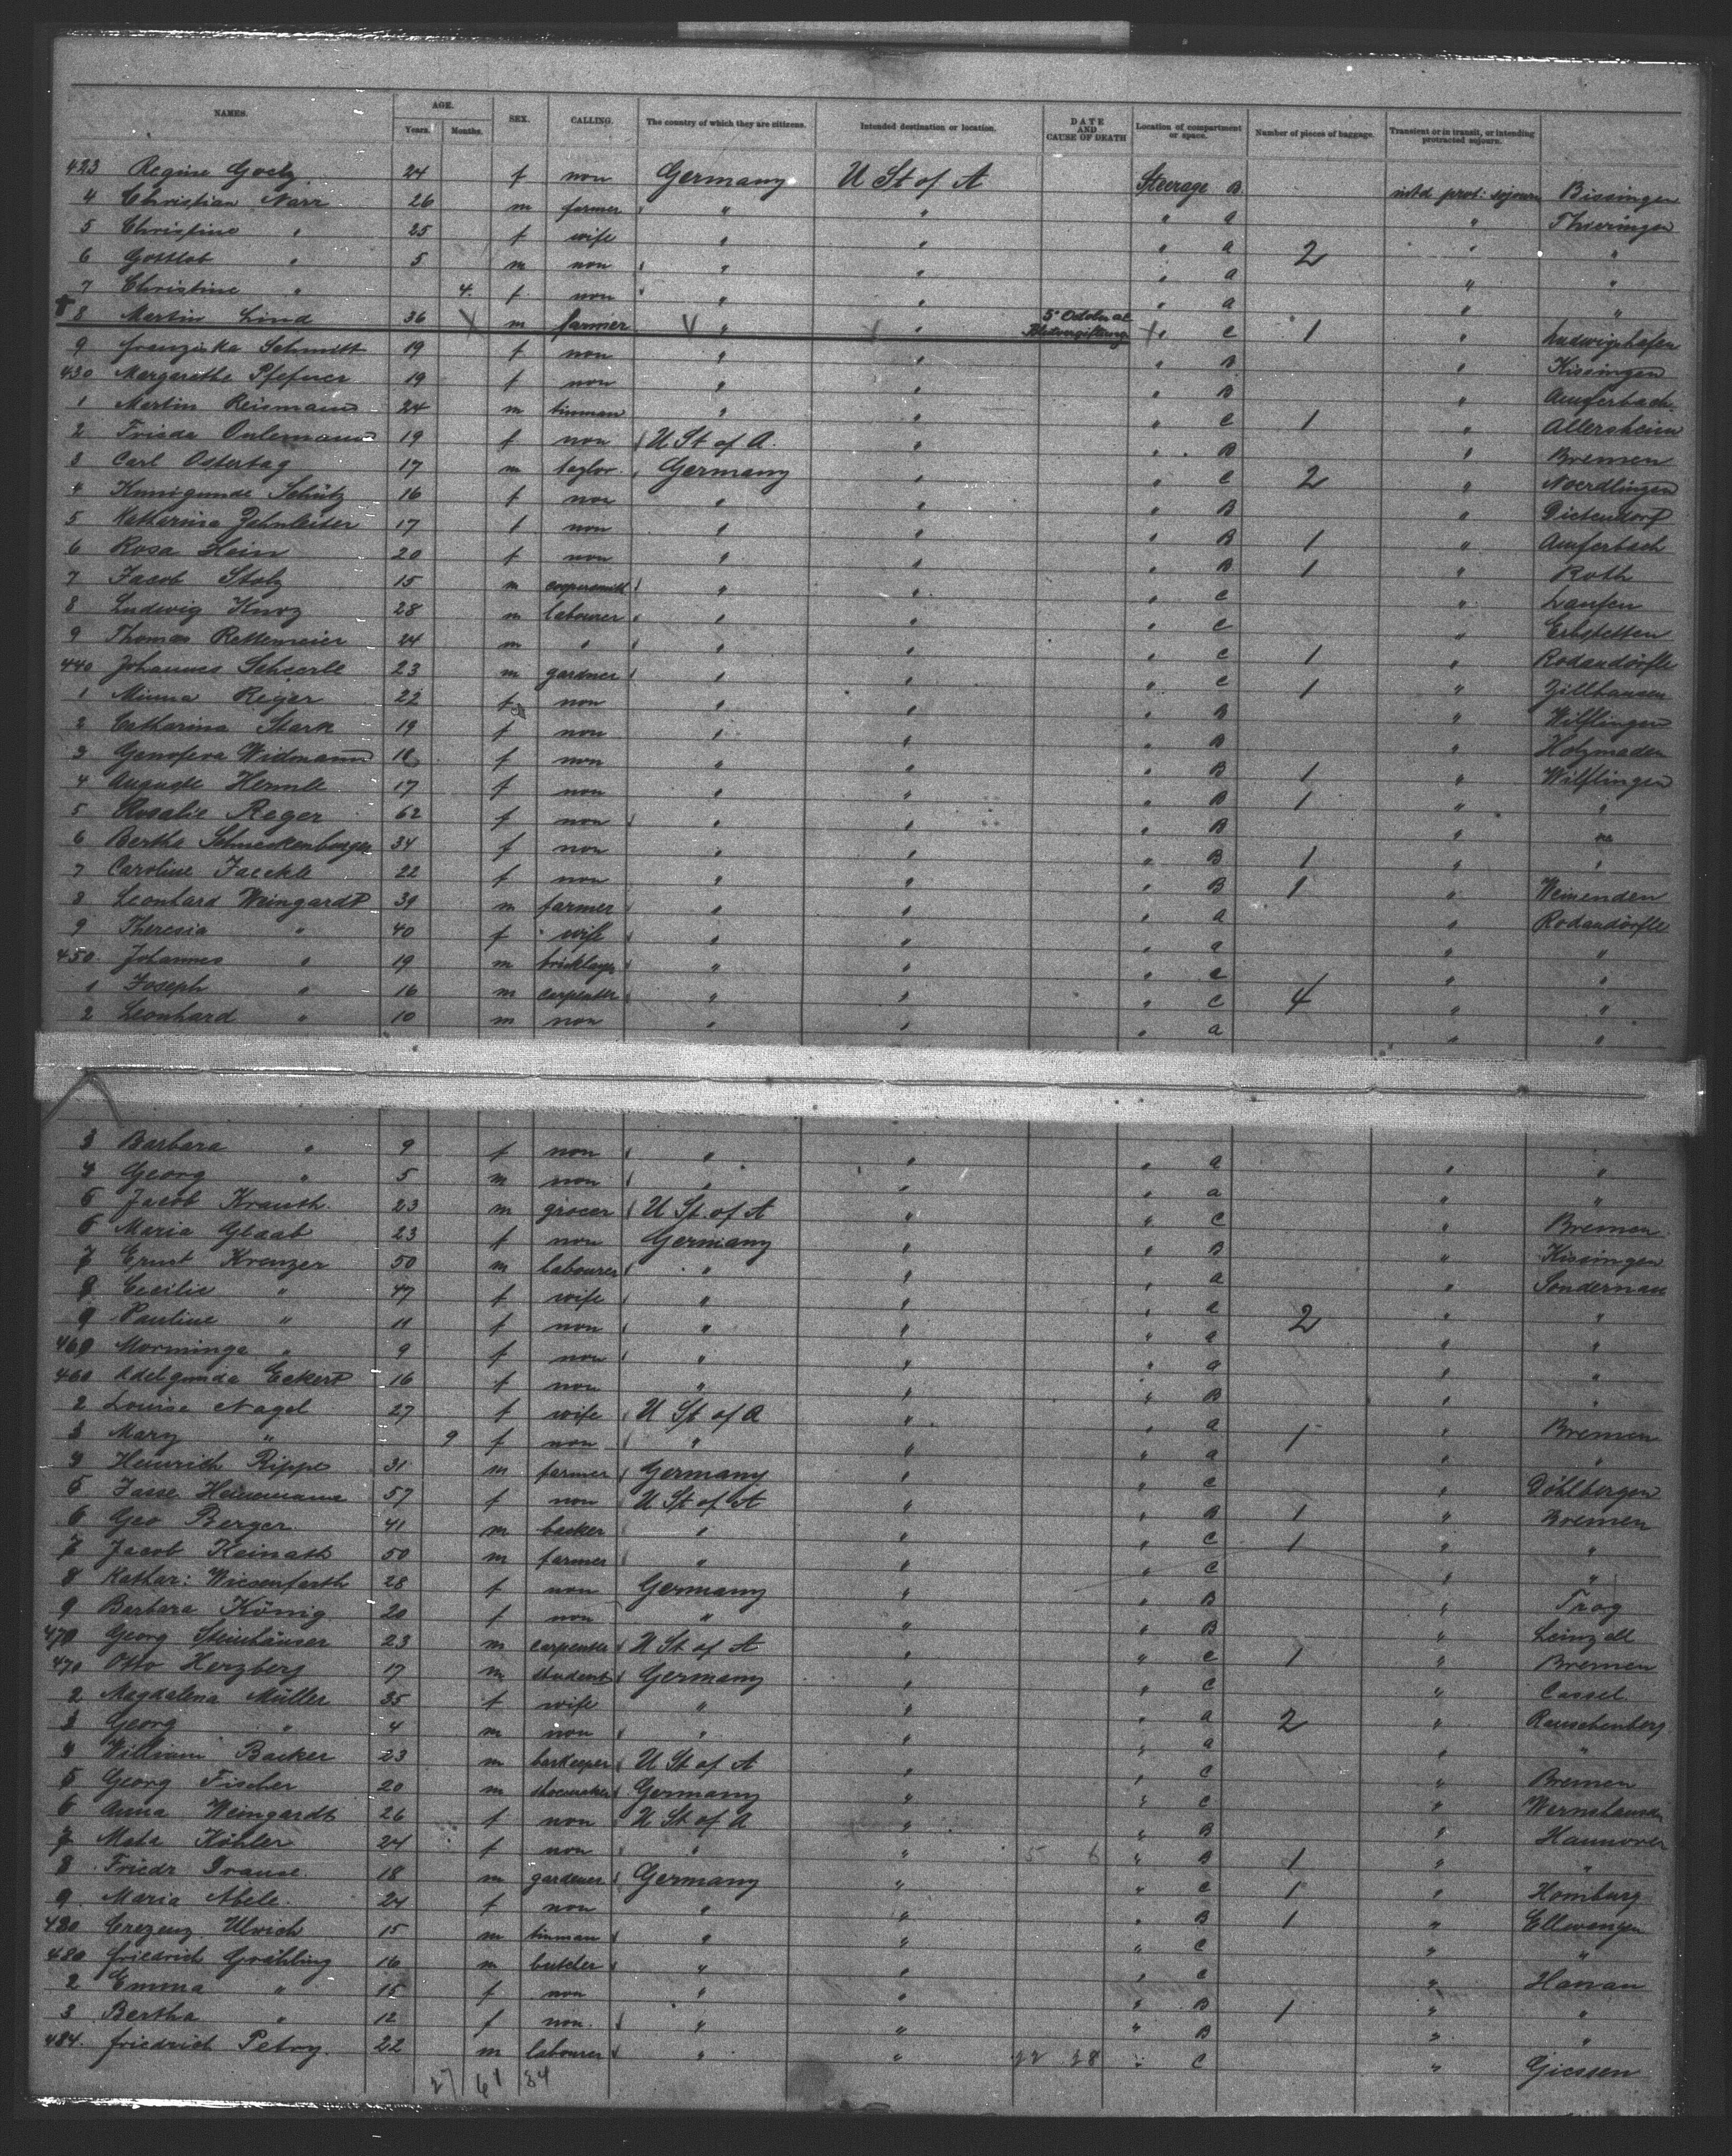 NAMES. AGE. Years. Months. SEX. CALLING. The country of which they are citizens. Intended destination or location. DATE AND CAUSE OF DEATH Location of compartment or space. Number of pieces of baggage. Transient or in transit, or intending protracted sojourn.
423 Regine Goelz 24 f non Germany U St of A Steerage B intd prot: sojourn Bissingen
4 Christian Narr 26 m farmer " " " a " Thieringen
5 Christine " 25 f wife " " " a 2 " "
6 Gottlob " 5 m non " " " a " "
7 Christine " 4. f non " " " a " "
8 Martin Lind 36 m farmer " " 5 October at Blutvergiftung " C 1 " Ludwigshafen
9 Franziska Schmitt 19 f non " " " B " Kissingen
430 Margarethe Pfefner 19 f non " " " B "
1 Martin Reismann 24 m tinman " " " C 1 " Allersheim
2 Frieda Onlemann 19 f non U St of A. " " B " Bremen
3 Carl Ostertag 17 m taylor Germany " " C 2 " Noerdlingen
4 Kunigunde Schütz 16 f non " " " B " Dietendorf
5 Katharina Zehnleiter 17 f non " " " B 1 "
6 Rosa Hein 20 f non " " " B 1 " Roth
7 Jacob Stolz 15 m coopersmith " " " C " Laufen
8 Ludwig Knorz 28 m labourer " " " C " Erbstetten
9 Thomas Rettenmeier 24 m " " " " C 1 " Rodandörfle
440 Johannes Scheerle 23 m gardner " " " C 1 " Zillhausen
1 Minna Reger 22 f non " " " B " Wilflingen
2 Catharina Stark 19 f non " " " B " Holzmaden
3 Genofeva Widmann 18 f non " " " B 1 " Wilflingen
4 Auguste Hermle 17 f non " " " B 1 " "
5 Rosalie Reger 62 f non " " " B " "
6 Bertha Schneckenburger 34 f non " " " B 1 " "
7 Caroline Jaeckle 22 f non " " " B 1 " Weinenden
8 Leonhard Weingardt 39 m farmer " " " a " Rodandörfle
9 Theresia " 40 f wife " " " a " "
450. Johannes " 19 m bricklayer " " " C " "
1 Joseph " 16 m carpenter " " " C 4 " "
2 Leonhard " 10 m non " " " a " "
3 Barbara " 9 f non " " " a " "
4 Georg " 5 m non " " " a " "
5 Jacob Krauth 23 m grocer U St. of A " " C " Bremen
6 Maria Glaab 23 f non Germany " " B " Kissingen
7 Ernst Krenzer 50 m labourer " " " a " Sondernau
8 Cecilie " 47 f wife " " " a 2 " "
9 Pauline " 11 f non " " " a " "
460 Morminga " 9 f non " " " a " "
460 Adelgunda Eckert 16 f non " " " B " "
2 Louise Nagel 27 f wife U St of A " " a 1 " Bremen
3 Mary " 9 f non " " " a " "
4 Heinrich Rippe 31 m farmer Germany " " C " Döhlbergen
5 Jasse Heinemann 57 f non U St of A " " B 1 " Bremen
6 Geo Berger 41 m backer " " " C 1 " "
7 Jacob Keinath 50 m farmer " " " C " "
8 Kathar: Wiesenfarth 28 f non Germany " " B " Trag
9 Barbara König 20 f non " " " B " Leinzell
470 Georg Steinhäuser 23 m carpenter U St of A " " C 1 " Bremen
470 Otto Herzberg 17 m student Germany " " C " Cassel
2 Magdalena Müller 35 f wife " " " a 2 " Rauschenberg
3 Georg " 4 m non " " " a " "
4 William Backer 23 m barkeeper U St of A " " C " Bremen
5 Georg Fischer 20 m shoemaker Germany " " C " Wernshausen
6 Anna Weingardt 26 f non U St of A " " B " Hannover
7 Meta Köhler 24 f non " " 5 6 " B 1 " "
8 Friedr Drause. 18 m gardener Germany " " C 1 " Homburg
9 Maria Abele. 24 f non " " " B 1 " Ellwangen
480 Crezenz Ulrich 15 m tinman " " " C " "
480 Friedrich Grähling 16 m butcher " " " C " Hanau
2 Emma " 15 f non " " " B 1 " "
3 Bertha " 12 f non. " " " B " "
484. Friedrich Petry. 22 m labourer " " 22 38 " C " Giessen
27 61 34